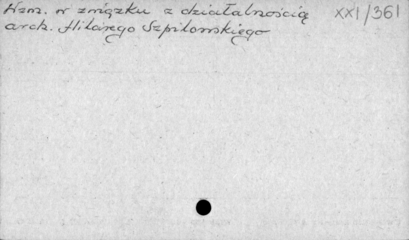 Wzm. w związku z działalnością XXI/361
arch. Hilarego Szpilowskiego